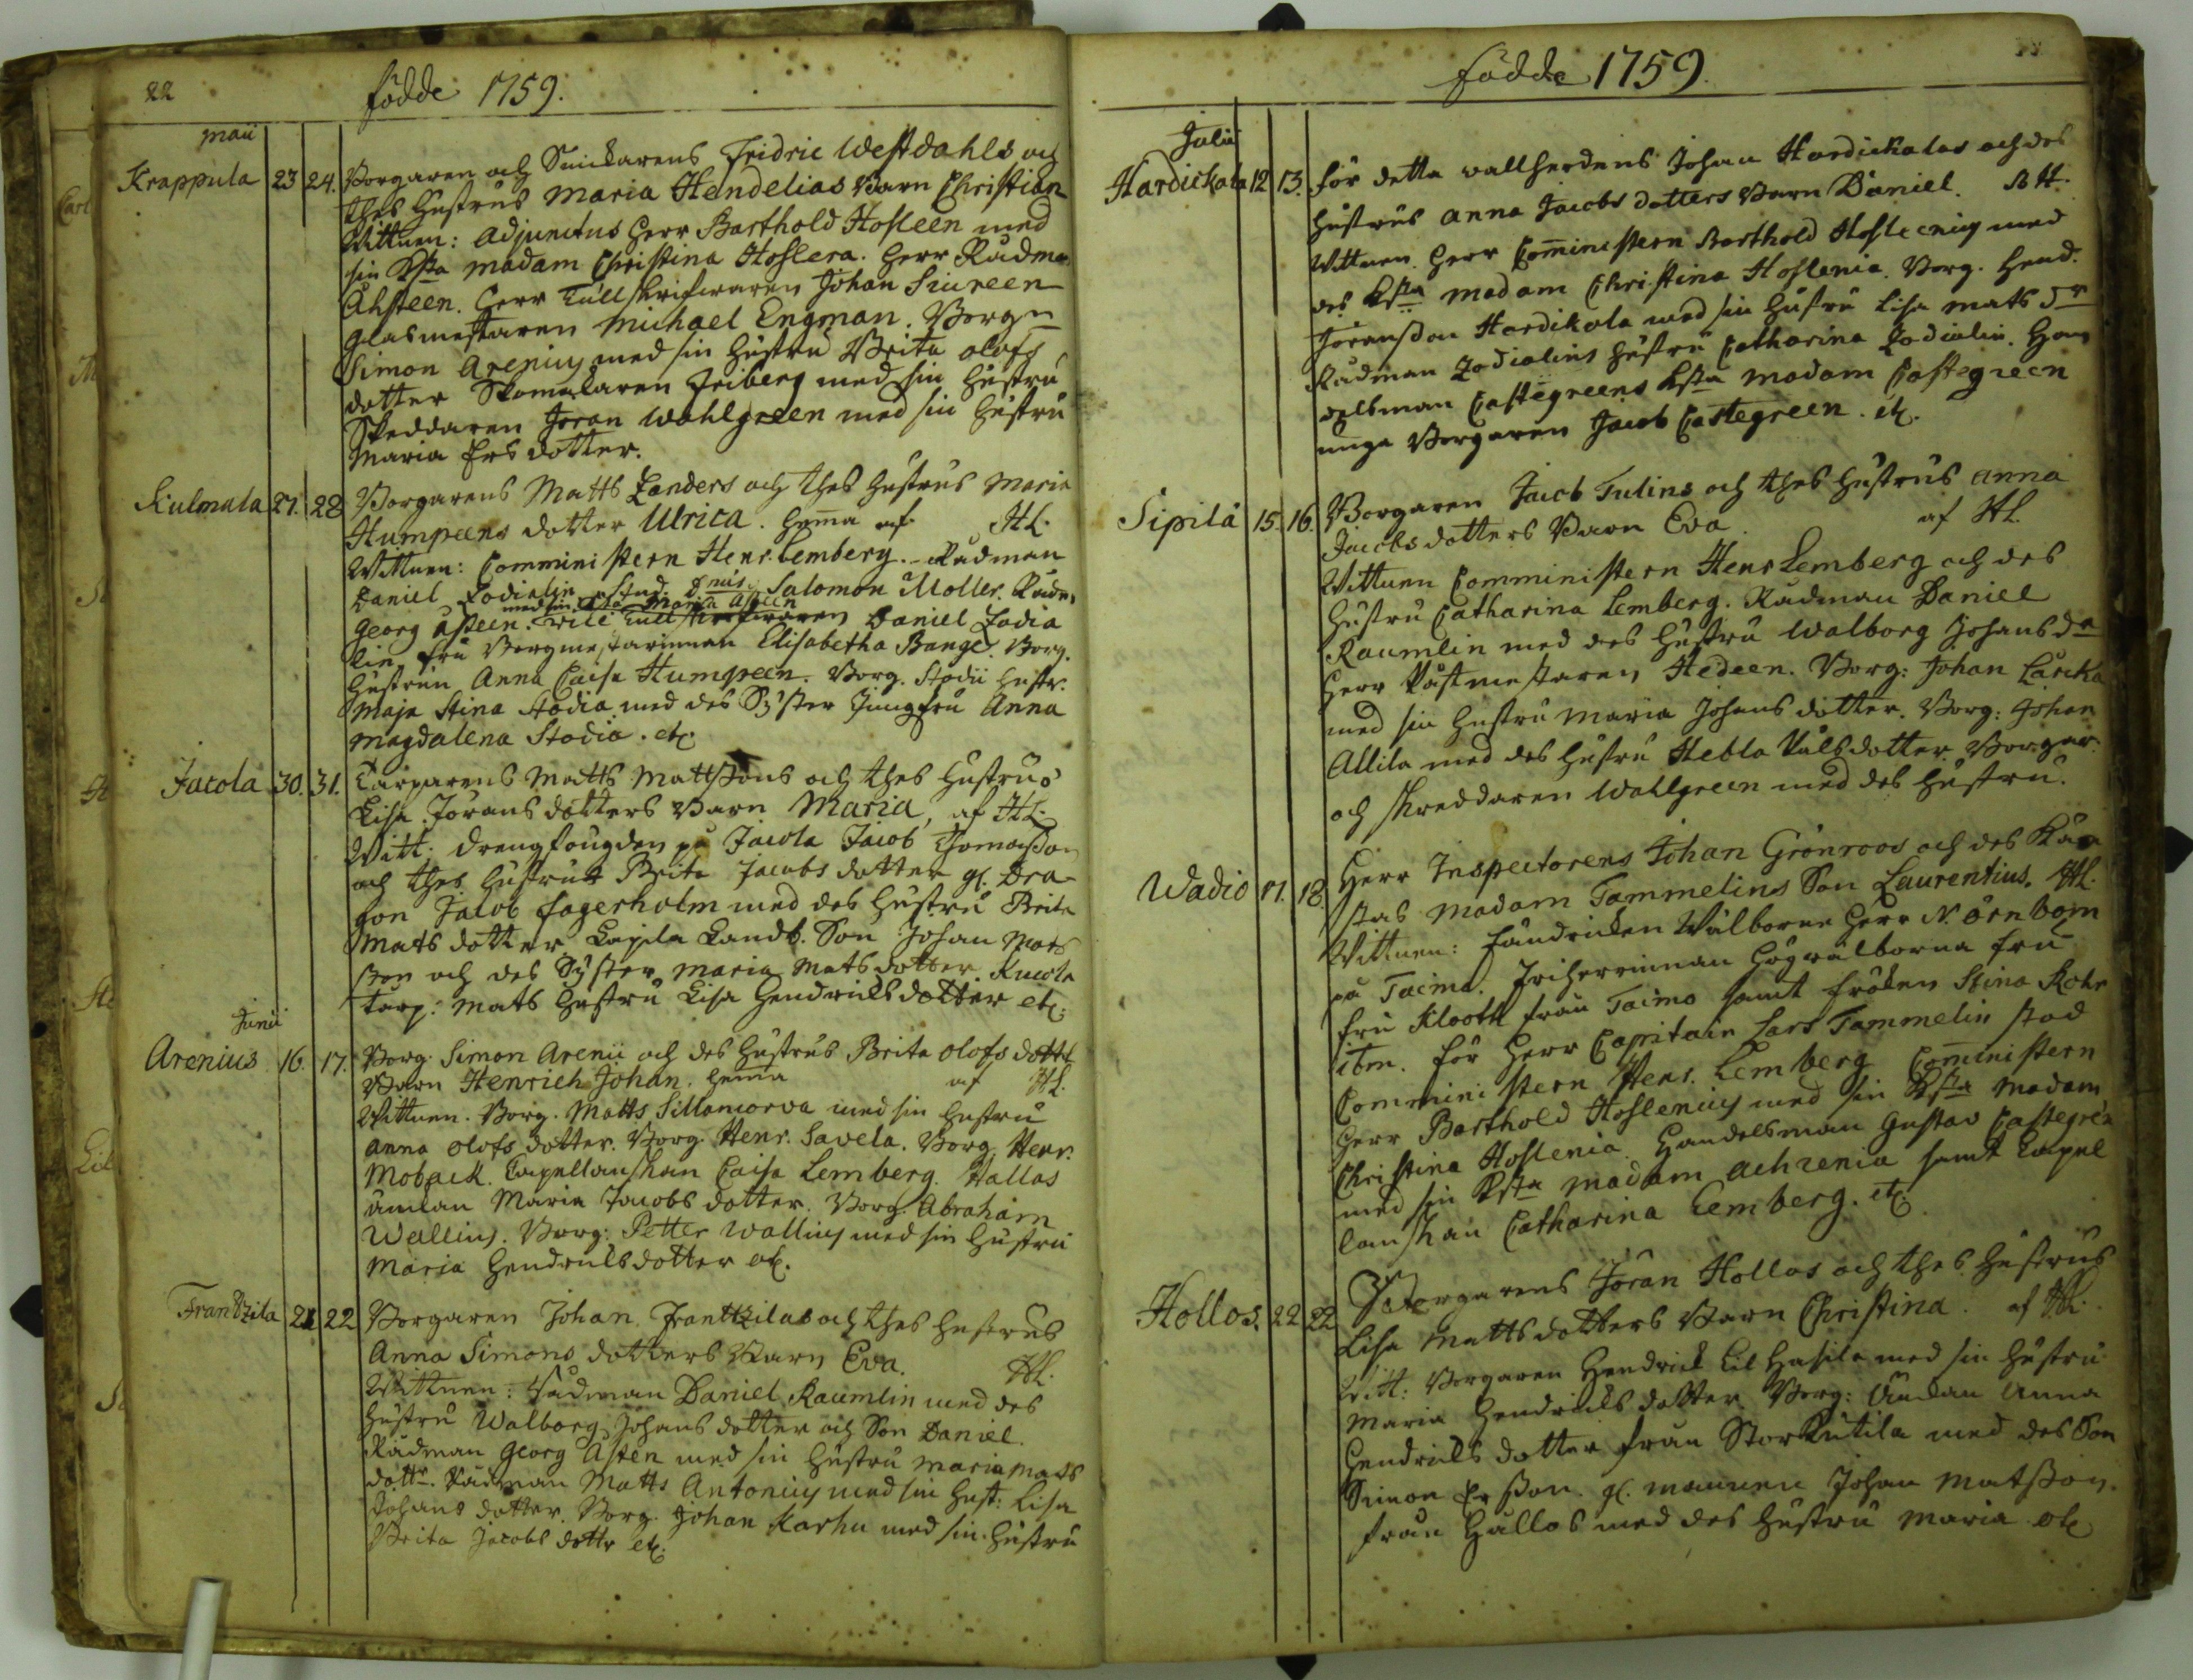 22
födde 1759.
Maii
Krappula 23 24. Borgaren och Smidarens Fridric Westdahls och
thes hustrus Maria Hendelias Barn Christian
Wittnen: Adjunctus Herr Barthold Hosleen med
sin Ksta madam Christina Hoslera. Herr Rådm.
Åhsteen. Herr Tullskrifwaren Johan Siureen
Glasmestaren Michael Engman. Borgn
Simon Arenius med sin hustru Brita Olofs
dotter Skomakaren Friberg med sin hustru
Skeddaren Joran Wahlgreen med sin hustru
Maria Ersdotter.
Kulmala 27. 28 Borgarens Matts Landers och thes hustrus Maria
Humpeens dotter Ulrica. hema af HL.
Wittnen: Comministern Henr. Lemberg. Rådman
Daniel Zodialin, stud. Dnus. Salomon Moller. Rådm.
med sin Ksta Maria Asteen
Georg Åsteen. Tullskrifwaren Daniel Zodia
lin, Fru Borgmestarinnan Elisabetha Bange. Borg.
hustrun Anna Caisa Humpeen. Borg. Stodii hustr.
Maja Stina Stodia med des Syster Jungfru Anna
Magdalena Stodia. etc.
Jacola 30. 31. Torparens Matts Mattssons och thes hustrus
Lisa Joransdotters Barn Maria, af HL.
Witt. drengfougden på Jacola Jacob Thomasson
och thes hustru Brita Jacobsdotter gl. Dra-
gon Jacob Fagerholm med des hustru Brita
Matsdotter Lapila Landb. Son Johan Mats
son och des Syster Maria Matsdotter Kucola
torp: Mats hustru Lisa Hendricksdotter etc.
Junii
Arenius 16. 17. Borg. Simon Arenii och des hustrus Brita Olofsdott
Barn Henrich Johan. hema af HL.
Wittnen. Borg. Matts Sillancorva med sin hustru
Anna Olofsdotter. Borg. Henr. Savela. Borg. Henr.
Moback. Capellanskan Caisa Lemberg. Hallas
änkan Maria Jacobsdotter. Borg. Abraham
Wallius. Borg: Petter Wallius med sin hustru
Maria Hendricksdotter etc.
Frantzila 21 22 Borgaren Johan Frantzilas och thes hustrus
Anna Simonsdotters Barn Eva. HL.
Wittnen: Rådman Daniel Raumlin med des
hustru Walborg Johansdotter och Son Daniel.
Rådman Georg Åsten med sin hustru Maria Mats
dottr. Rådman Matts Antonius med sin hust: Lisa
Johansdotter. Borg. Johan Karhu med sin hustru
Brita Jacobsdottr etc.
födde 1759.
Julii
Hardickala 12 13. för detta wallherdens Johan Hardickalas och des
hustrus Anna Jacobsdotters Barn Daniel. BH.
Wittnen. Herr Cominestern Barthold Hoslenius med
des Ksta Madam Christina Hoslenia. Borg. Hend.
Joransson Hardikola med sin hustru Lisa Mats dr
Rådman Zodialins hustru Catharina Zodialin. Han
delsman Castegreens Ksta madam Castegreen
unga Borgaren Jacob Castegreen. etc.
Sipilä 15. 16. Borgaren Jacob Tulins och thes hustrus Anna
Jacobsdotters Barn Eva af HL.
Wittnen Comministern Henr Lemberg och des
hustru Catharina Lemberg. Rådman Daniel
Raumlin med des hustru Walborg Johansdr
Herr Råstmestaren Hedeen. Borg: Johan Larcka
med sin hustru Maria Johansdotter. Borg: Johan
Allila med des hustru Hebla Påls dotter. Borgar
och Skreddaren Wahlgreen med des hustru.
Wadio 17. 18. Herr Inspectorens Johan Grönroos och des Kära
stas Madam Tammelins Son Laurentius. HL.
Wittnen: Fändricken Wälborne Herr N. Örnbom
på Tacimo. Friherrinnan Högwälborna Fru
Fru Klooth från Tacimo samt Fröken Stina Rohr
ibm. för Herr Capitain Lars Tammelin stod
Comministern Henr. Lemberg Coministern
Herr Barthold Hoslenius med sin Ksta Madam
Christina Hoslenia. Handelsman Gustav Castegren
med sin Ksta madam Achrenia samt Capel
lanskan Catharina Lemberg. etc.
Hollos. 22 22 Borgarens Jöran Hollos och thes hustrus
Lisa Mattsdotters Barn Christina. af HL.
Witt: Borgaren Hendrick Lill Hasila med sin hustru
Maria Hendricksdotter. Borg: Änkan Anna
Hendricksdotter från Stor Kutila med des Son
Simon Ersson. gl. mannen Johan Matsson.
från Hallos med des hustru Maria etc